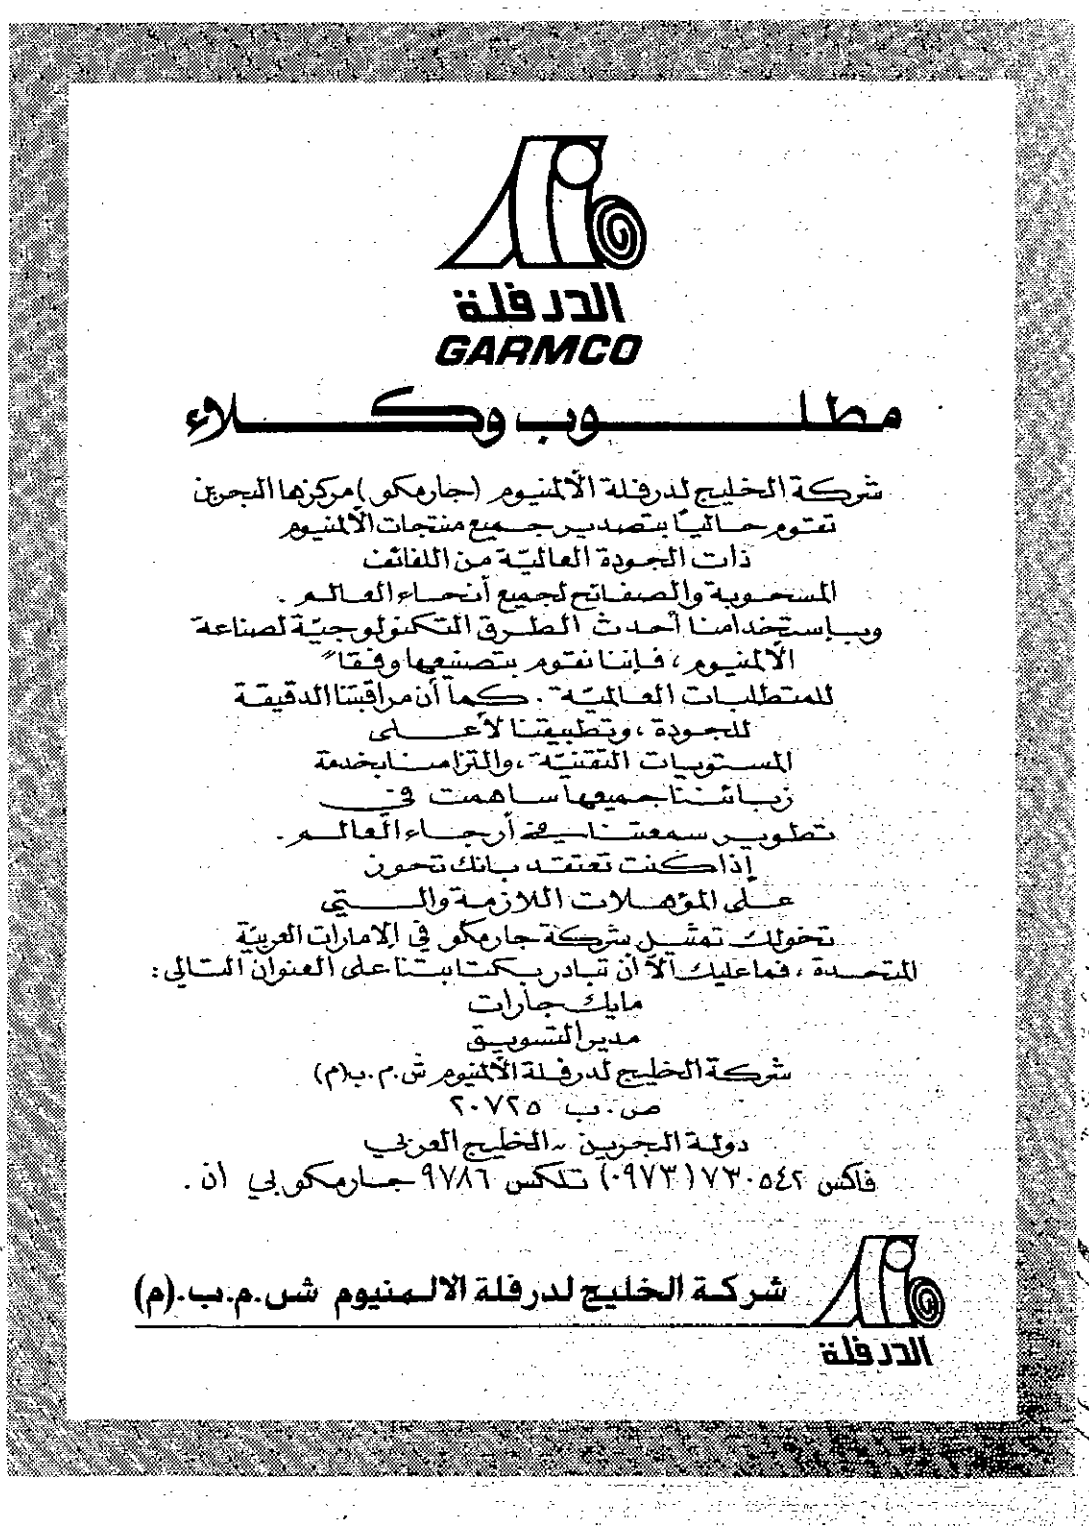 الدرفلة
GARMCO
مطلوب وكلاء
شركة الخليج لدرفلة الألمنيوم (جارمكو) مركزها البحرين
تقوم حاليًا بتصدير جميع منتجات الألمنيوم
ذات الجودة العاليّة من اللفائف
المسحوبة والصفائح لجميع أنحاء العالم .
وبإستخدامنا أحدث الطرق التكنولوجيّة لصناعة
الألمنيوم ، فإننا نقوم بتصنيعها وفقاً
للمتطلبات العالميّة . كما أن مراقبتنا الدقيقة
للجودة ، وتطبيقنا لأعلى
المستويات التقنيّة ، والتزامنا بخدمة
زبائننا جميعها ساهمت في
تطوير سمعتنا في أرجاء العالم .
إذا كنت تعتقد بانك تحوز
على المؤهلات اللازمة والتي
تخولك تمثيل شركة جارمكو في الامارات العربيّة
المتحدة ، فما عليك ألا أن تبادر بكتابتنا على العنوان التالي :
مايك جارات
مدير التسويق
شركة الخليج لدرفلة الألمنيوم ش . م . ب (م)
ص . ب ٢٠٧٢٥
دولة البحرين - الخليج العربي
فاكس ٧٣٠٥٤٢ (٠٩٧٣) تلكس ٩٧٨٦ جارمكو بي ان .
شركة الخليج لدرفلة الالمنيوم ش.م.ب.(م)
الدرفلة